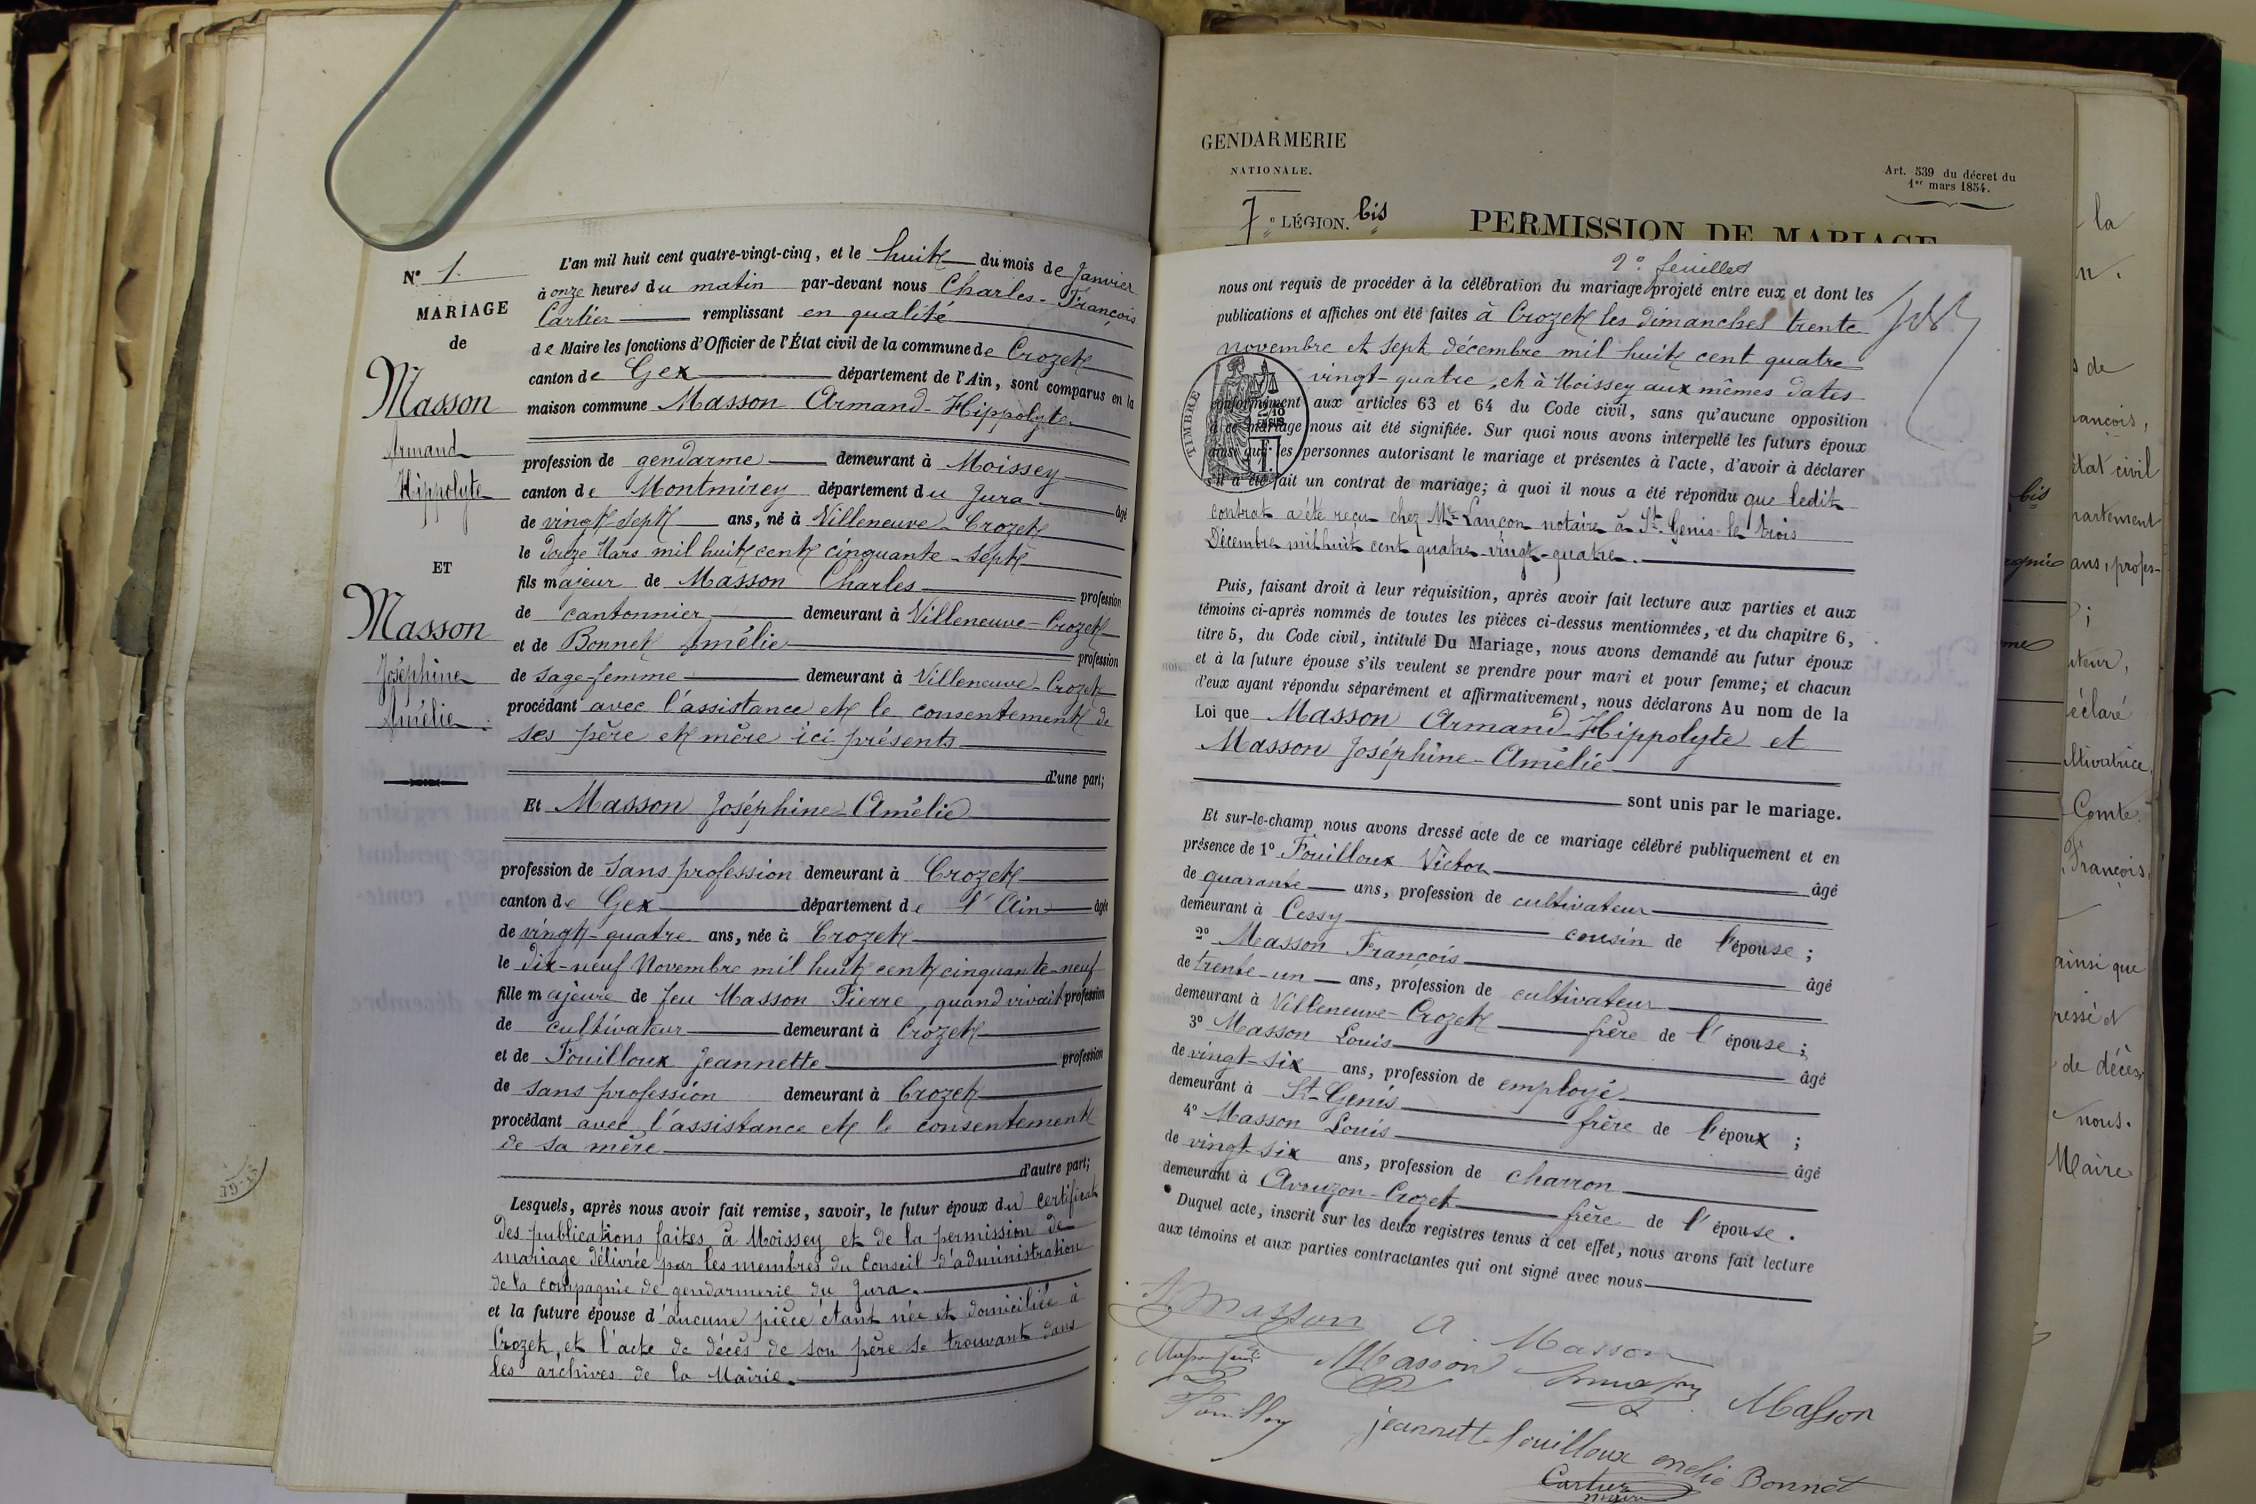 N° 1.
MARIAGE
de
Masson
Armand
Hippolyte
ET
Masson
Joséphine
Amélie
L'an mil huit cent quatre-vingt-cinq, et le huit du mois de Janvier
à onze heures du matin par-devant nous Charles-François
Cartier remplissant en qualité
de Maire les fonctions d'Officier de l'État civil de la commune de Crozet
canton de Gex département de l'Ain, sont comparus en la
maison commune Masson Armand-Hippolyte
profession de gendarme demeurant à Moissey
canton de Montmirey département du Jura âgé
de vingt-sept ans, né à Villeneuve-Crozet
le douze Mars mil huit cent cinquante-sept
fils majeur de Masson Charles profession
de cantonnier demeurant à Villeneuve-Crozet
et de Bonnet Amélie profession
de sage-femme demeurant à Villeneuve-Crozet
procédant avec l'assistance et le consentement de
ses père et mère ici présents
d'une part;
Et Masson Joséphine-Amélie
profession de sans profession demeurant à Crozet
canton de Gex département de l'Ain âgée
de vingt-quatre ans, née à Crozet
le dix-neuf Novembre mil huit cent cinquante-neuf
fille majeure de feu Masson Pierre, quand vivait profession
de cultivateur demeurant à Crozet
et de Fouilloux Jeannette profession
de sans profession demeurant à Crozet
procédant avec l'assistance et le consentement
de sa mère
d'autre part;
Lesquels, après nous avoir fait remise, savoir, le futur époux du certificat
des publications faites à Moissey et de la permission de
mariage délivrée par les membres du Conseil d'administration
de la compagnie de gendarmerie du Jura.
et la future épouse d'aucune pièce étant née et domiciliée à
Crozet, et l'acte de décès de son père se trouvant dans
les archives de la Mairie.
GENDARMERIE
NATIONALE.
7e LÉGION. bis
Art. 539 du décret du
1er mars 1854.
PERMISSION DE MARIAGE
2e feuillet
nous ont requis de procéder à la célébration du mariage projeté entre eux et dont les
publications et affiches ont été faites à Crozet les dimanches trente
novembre et sept décembre mil huit cent quatre
vingt-quatre, et à Moissey aux mêmes dates
conformément aux articles 63 et 64 du Code civil, sans qu'aucune opposition
à ce mariage nous ait été signifiée. Sur quoi nous avons interpellé les futurs époux
ainsi que les personnes autorisant le mariage et présentes à l'acte, d'avoir à déclarer
s'il a été fait un contrat de mariage; à quoi il nous a été répondu que ledit
contrat a été reçu chez Me Lançon notaire à St Genis le trois
Décembre mil huit cent quatre-vingt-quatre.
TIMBRE
Puis, faisant droit à leur réquisition, après avoir fait lecture aux parties et aux
témoins ci-après nommés de toutes les pièces ci-dessus mentionnées, et du chapitre 6,
titre 5, du Code civil, intitulé Du Mariage, nous avons demandé au futur époux
et à la future épouse s'ils veulent se prendre pour mari et pour femme; et chacun
d'eux ayant répondu séparément et affirmativement, nous déclarons Au nom de la
Loi que Masson Armand-Hippolyte et
Masson Joséphine-Amélie
sont unis par le mariage.
Et sur-le-champ nous avons dressé acte de ce mariage célébré publiquement et en
présence de 1° Fouilloux Victor âgé
de quarante ans, profession de cultivateur
demeurant à Cessy cousin de l'épouse;
2° Masson François âgé
de trente-un ans, profession de cultivateur
demeurant à Villeneuve-Crozet frère de l'épouse;
3° Masson Louis âgé
de vingt-six ans, profession de employé
demeurant à St-Genis frère de l'époux;
4° Masson Louis âgé
de vingt-six ans, profession de charron
demeurant à Avouzon-Crozet frère de l'épouse.
Duquel acte, inscrit sur les deux registres tenus à cet effet, nous avons fait lecture
aux témoins et aux parties contractantes qui ont signé avec nous
Masson A. Masson
Masson Masson
jeannette fouilloux Amelie Bonnet
Cartier
maire
la
de
François,
état civil
bis
partement
ans, profes-
éclaré
ltivatrice
Comte
François,
ainsi que
ressé et
de décès
nous.
Maire